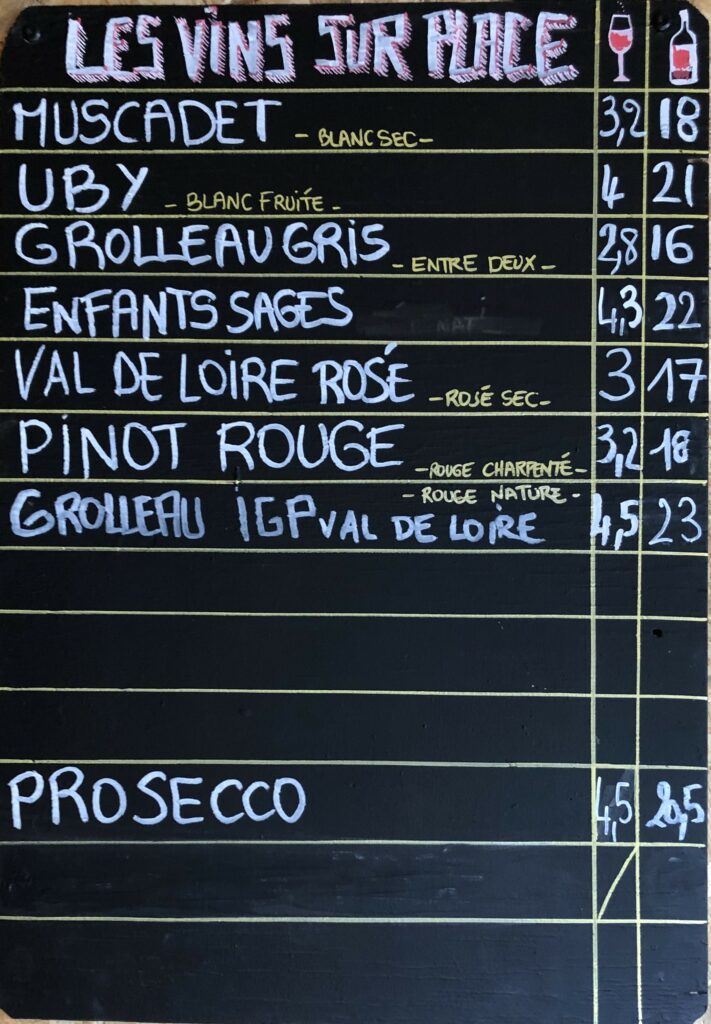 LES VINS SUR PLACE
MUSCADET - BLANC SEC - 3,2 18
UBY - BLANC FRUITÉ - 4 21
GROLLEAU GRIS - ENTRE DEUX - 2,8 16
ENFANTS SAGES 4,3 22
VAL DE LOIRE ROSÉ - ROSÉ SEC - 3 17
PINOT ROUGE - ROUGE CHARPENTÉ - 3,2 18
- ROUGE NATURE -
GROLLEAU IGP VAL DE LOIRE 4,5 23
PROSECCO 4,5 20,5